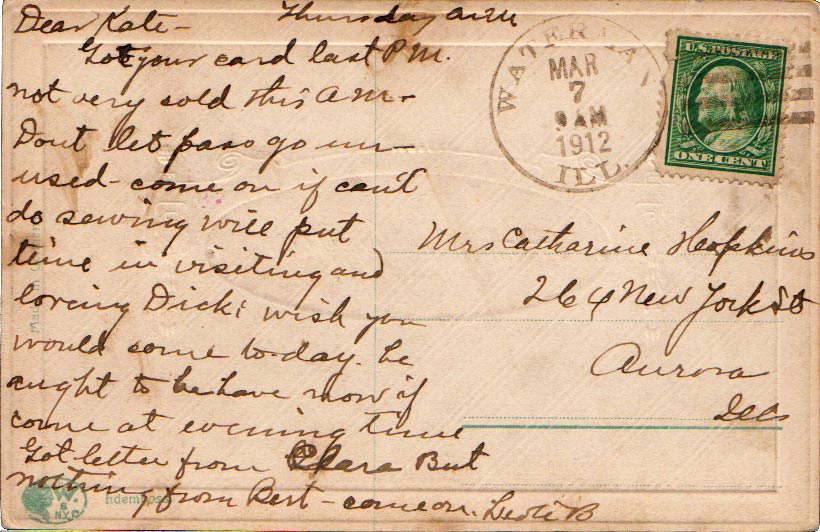 Dear Kate- Thursday a.m
Got your card last P.M.
not very cold this A.M-
Dont let pass go un-
used- come on if can't
do sewing will put
time in visiting and
loving Dick; wish you
would come to-day. he
aught to behave now if
come at evening time
Got letter from Clara But
nothing from Bert- come on.
WATERMAN
MAR
7
AM
1912
ILL.
U.S. POSTAGE
ONE CENT
Mrs Catharine Hopkins
264 New York St
Aurora
Ills
Made in
W.
&
N.Y.